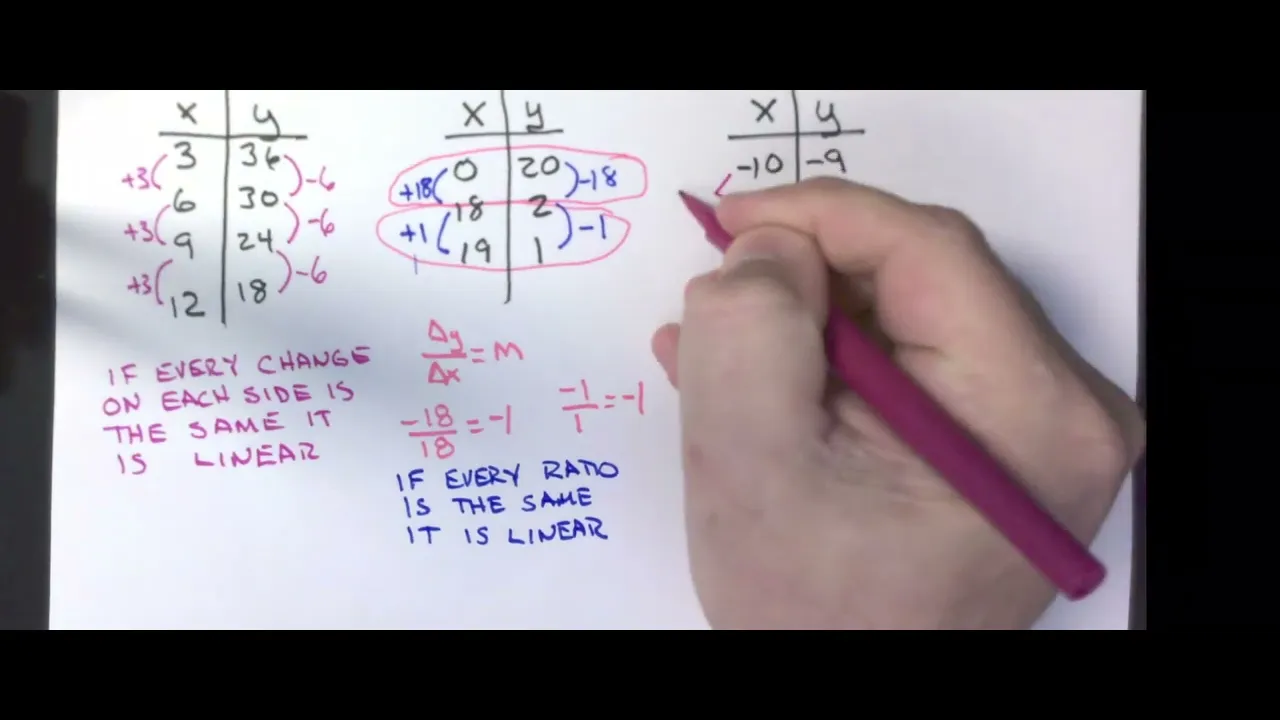 x y
3 36
6 30
9 24
12 18
+3 -6
+3 -6
+3 -6
IF EVERY CHANGE
ON EACH SIDE IS
THE SAME IT
IS LINEAR
x y
0 20
18 2
19 1
+18 -18
+1 -1
Δy/Δx = m
-18/18 = -1
-1/1 = -1
IF EVERY RATIO
IS THE SAME
IT IS LINEAR
x y
-10 -9